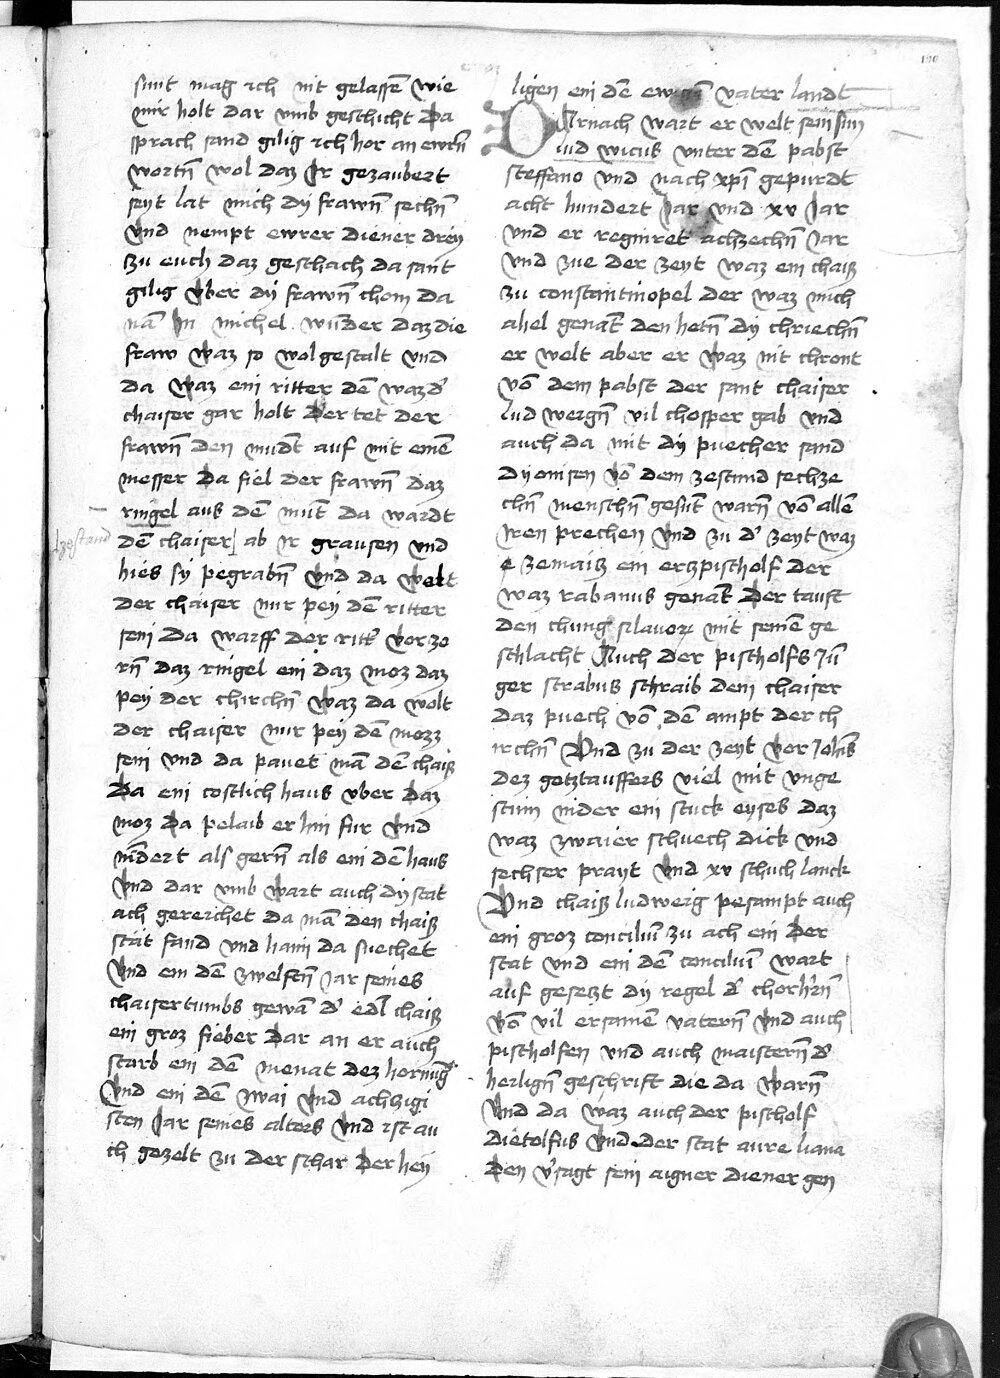 sunt mag ich nit gelassē wie
mir holt dar vmb geschicht Da
sprach sand gilig ich hor an ewrn̄
wortn̄ wol daz Ir gezaubert
seyt lat mich dy frawn̄ sechn̄
vnd nempt ewrer diener dreÿ
zu euch daz geschach da sant
gilig vber dy frawn̄ chom da
nā In michel wunder daz die
fraw waz so wolgestalt vnd
da waz ein ritter dē waz d'
chaiser gar holt Der tet der
frawn̄ den mūdt auf mit einē
messer Da fiel der frawn̄ daz
ringel aus dē mūt da wardt
dē chaiser ab ir grausen vnd
hies sy pegrabn̄ vnd da welt
der chaiser nur peÿ dē ritter
sein Da warff der ritt' vor zo
rn̄ daz ringel ein daz moz daz
peÿ der chirchn̄ waz da wolt
der chaiser nur peÿ dē mozz
sein vnd da pavet mā dē chaiß
Da ein costlich haus vber daz
moz Da pelaib er hin fur vnd
nīdert als gern̄ als ein dē haus
vnd dar vmb wart auch dy stat
ach gereichet da mā den chaiß
stāt fand vnd haim da suechet
vnd ein dē zwelftn̄ Jar seines
chaisertumbs gewā d' edl chaiß
ein groz fieber Dar an er auch
starb ein dē menat dez hornūg
vnd ein dē zwai vnd achzigi
sten Jar seines alters vnd ist au
ch gezelt zu der schar Der heÿ
ligen ein dē ewigē vater landt
DArnach wart er welt sein sun
lud wicus vnter dē pabst
steffano vnd nach xp̄i gepurdt
acht hundert Jar vnd xv Jar
vnd er regniret achzechn̄ Jar
vnd zue der zeyt waz ein chaiß
zu constantinopel der waz mich
ahel genāt den hetn̄ dy chriechn̄
er welt aber er waz nit chront
vō dem pabst der sant chaiser
lud weign̄ vil chosper gab vnd
auch da mit dy puecher sand
dyonisen vō dem zestund sechze
chn̄ menschn̄ gesūt warn̄ vō allē
iren prechen vnd zu d' zeyt waz
e zemaiß ein erzpischolf der
waz rabanus genāt Der tauft
den chung slauor mit seinē ge
schlacht Auch der pischolfs Jū
ger strabus schraib dem chaiser
daz puech vō dē ampt der ch
irchn̄ Vnd zu der zeyt vor Johīs
dez gotztauffers viel mit vnge
stum nider ein stuck eyses daz
waz zwaier schuech dick vnd
sechser prayt vnd xv schuch lanck
Vnd chaiß ludweig pesampt auch
ein groz conciliū zu ach ein der
stat vnd ein dē conciliū wart
auf gesetzt dy regel d' chorh'rn̄
vō vil ersamē vatern̄ vnd auch
pischolfen vnd auch maistern̄ d'
heilign̄ geschrift die da warn̄
vnd da waz auch der pischolf
dietolfus vnd der stat aure liana
den v'sagt sein aigner diener gen